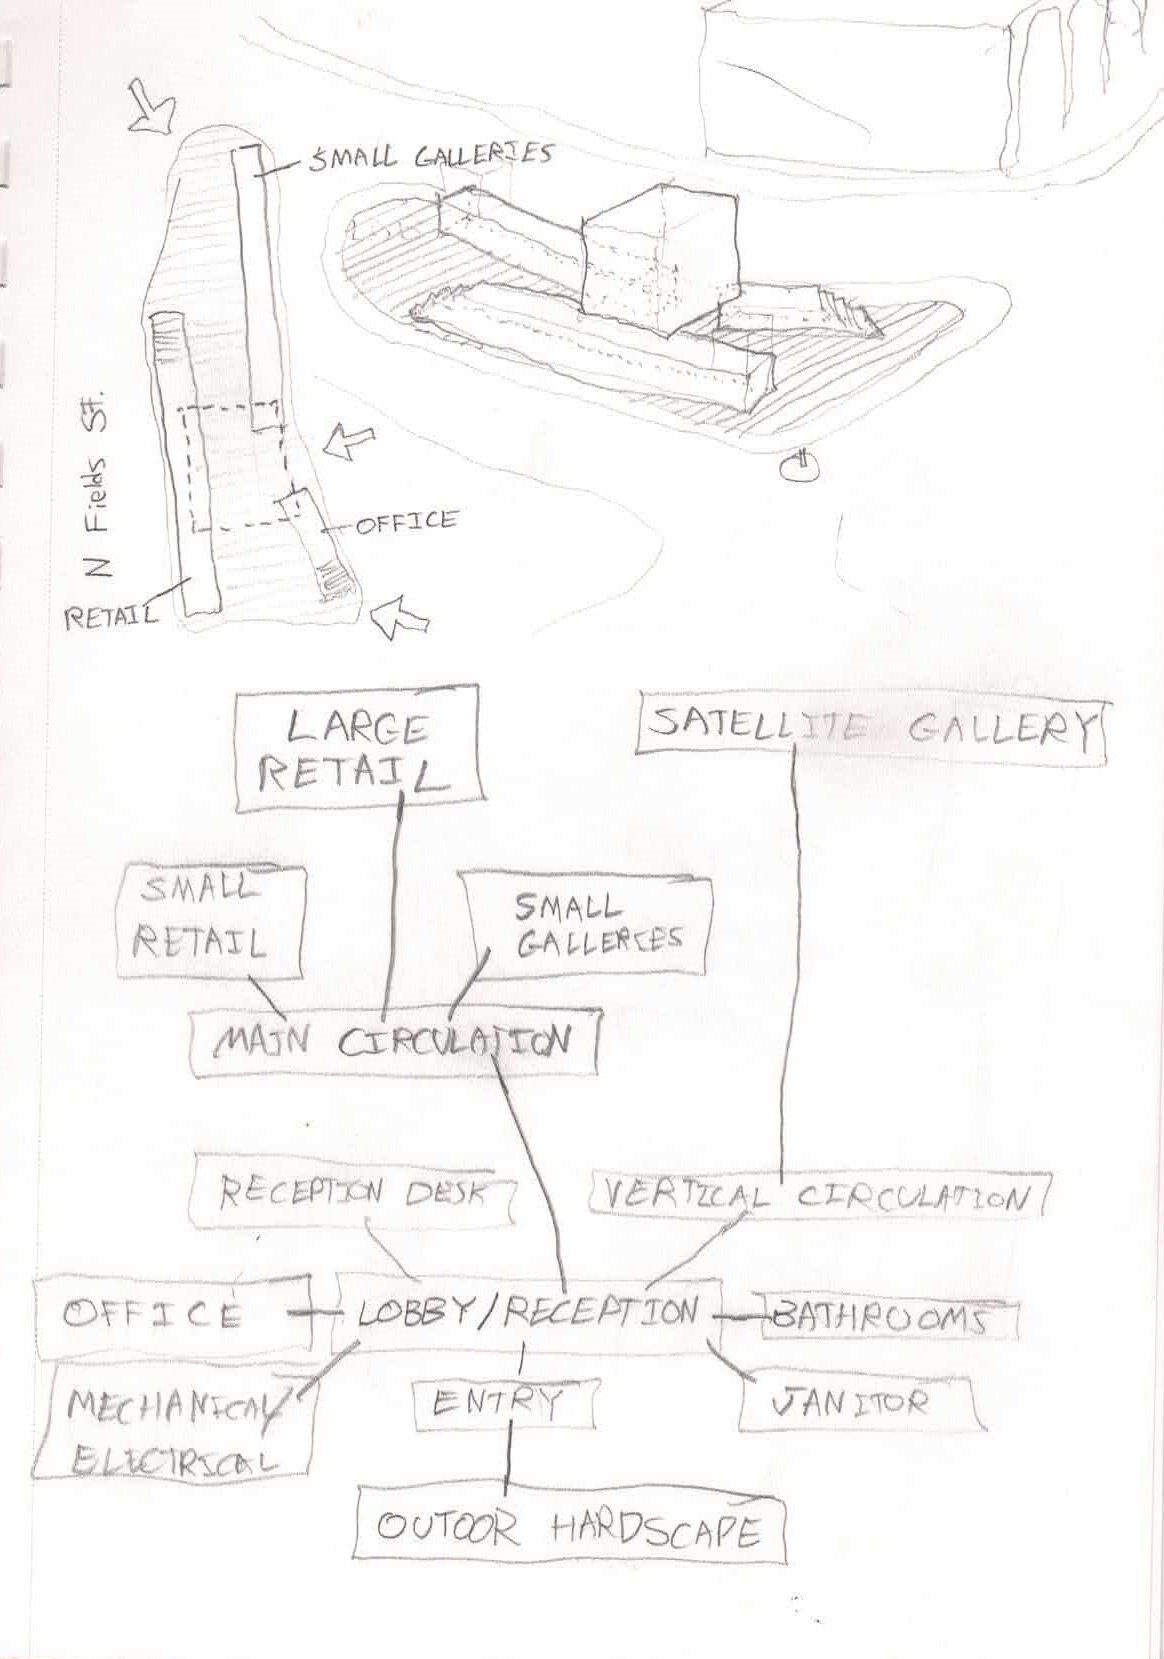 SMALL GALLERIES
N Fields St.
OFFICE
RETAIL
LARGE
RETAIL
SATELLITE GALLERY
SMALL
RETAIL
SMALL
GALLERIES
MAIN CIRCULATION
RECEPTION DESK
VERTICAL CIRCULATION
OFFICE
LOBBY/RECEPTION
BATHROOMS
MECHANICAL/
ELECTRICAL
ENTRY
JANITOR
OUTOOR HARDSCAPE